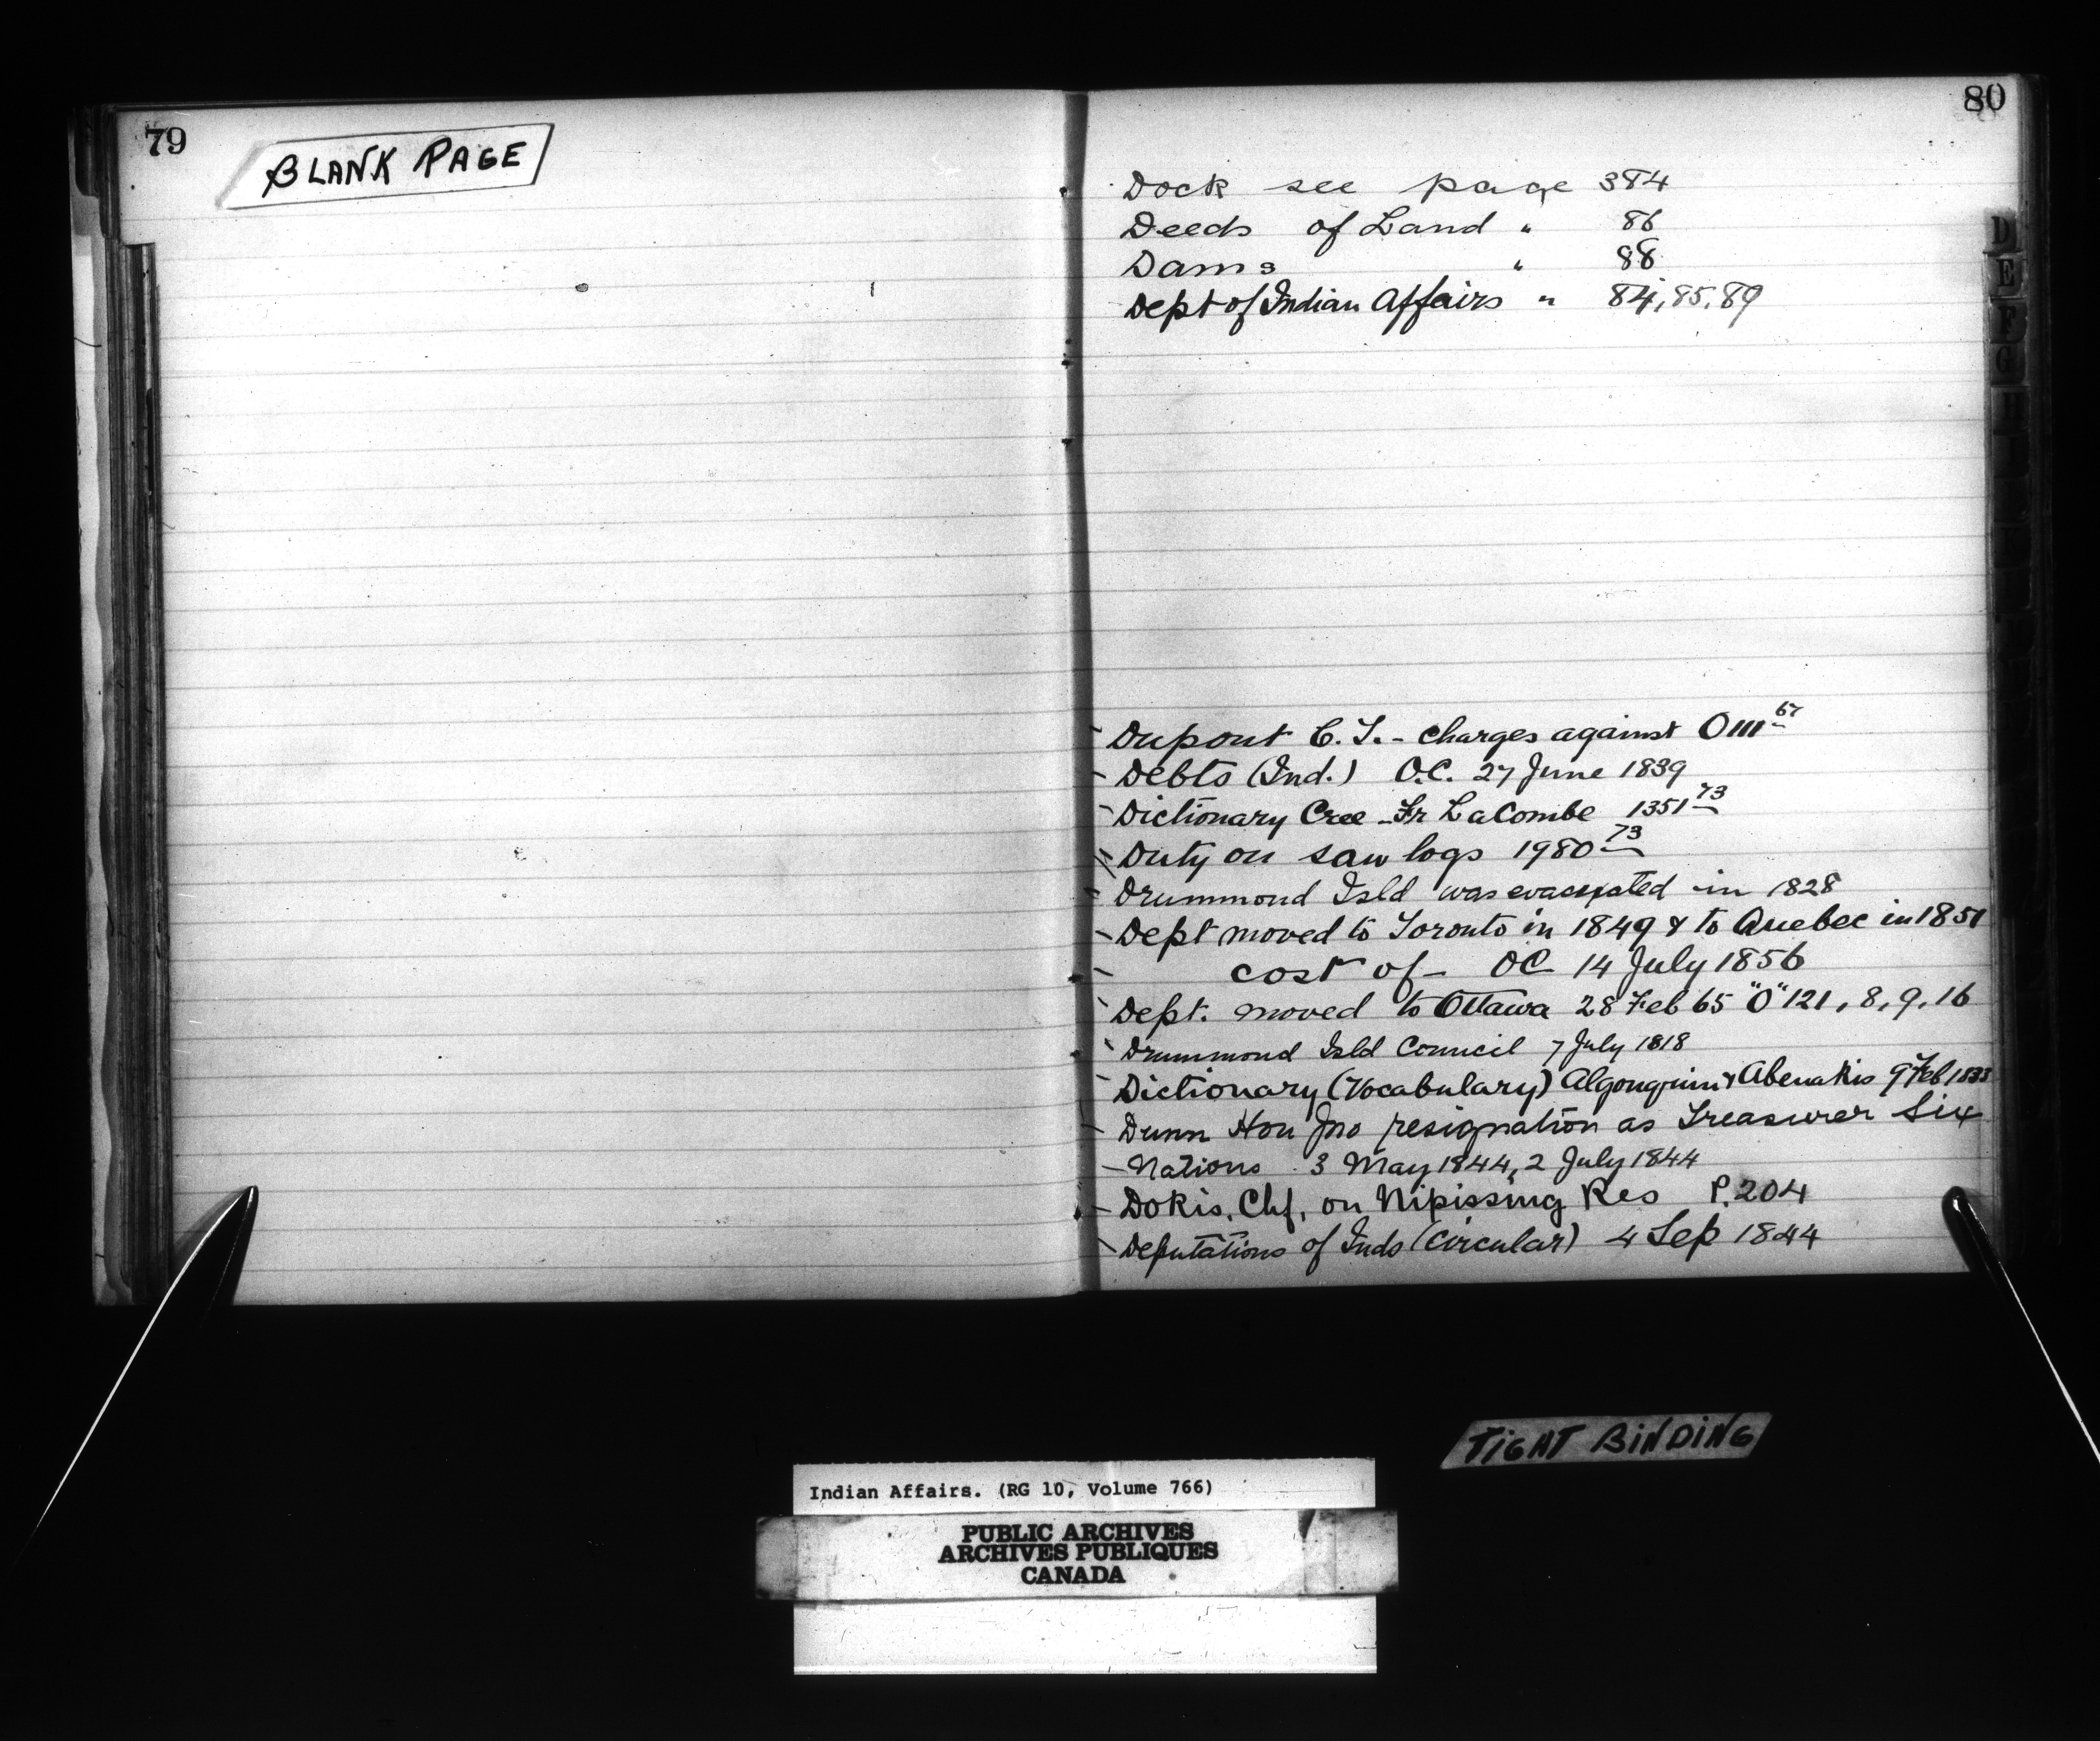 79
BLANK PAGE
80
Dock see page 384
Deeds of Land " 86
Dams " 88
Dept of Indian Affairs " 84, 85, 89
Dupont C. T. - charges against O 111 67
Debts (Ind.) O.C. 27 June 1839
Dictionary Cree - Fr LaCombe 1351 73
Duty on saw logs 1980 73
Drummond Isld was evacuated in 1828
Dept moved to Toronto in 1849 & to Quebec in 1851
cost of - OC 14 July 1856
Dept. moved to Ottawa 28 Feb 65 "O" 121, 8, 9, 16
Drummond Isld Council 7 July 1818
Dictionary (Vocabulary) Algonquin & Abenakis 9 Feb 1833
Dunn Hon Jno resignation as Treasurer Six
- Nations 3 May 1844, 2 July 1844
Dokis, Chf, on Nipissing Res P. 204
Deputations of Inds (Circular) 4 Sep 1844
D
E
F
G
H
TIGHT BINDING
Indian Affairs. (RG 10, Volume 766)
PUBLIC ARCHIVES
ARCHIVES PUBLIQUES
CANADA